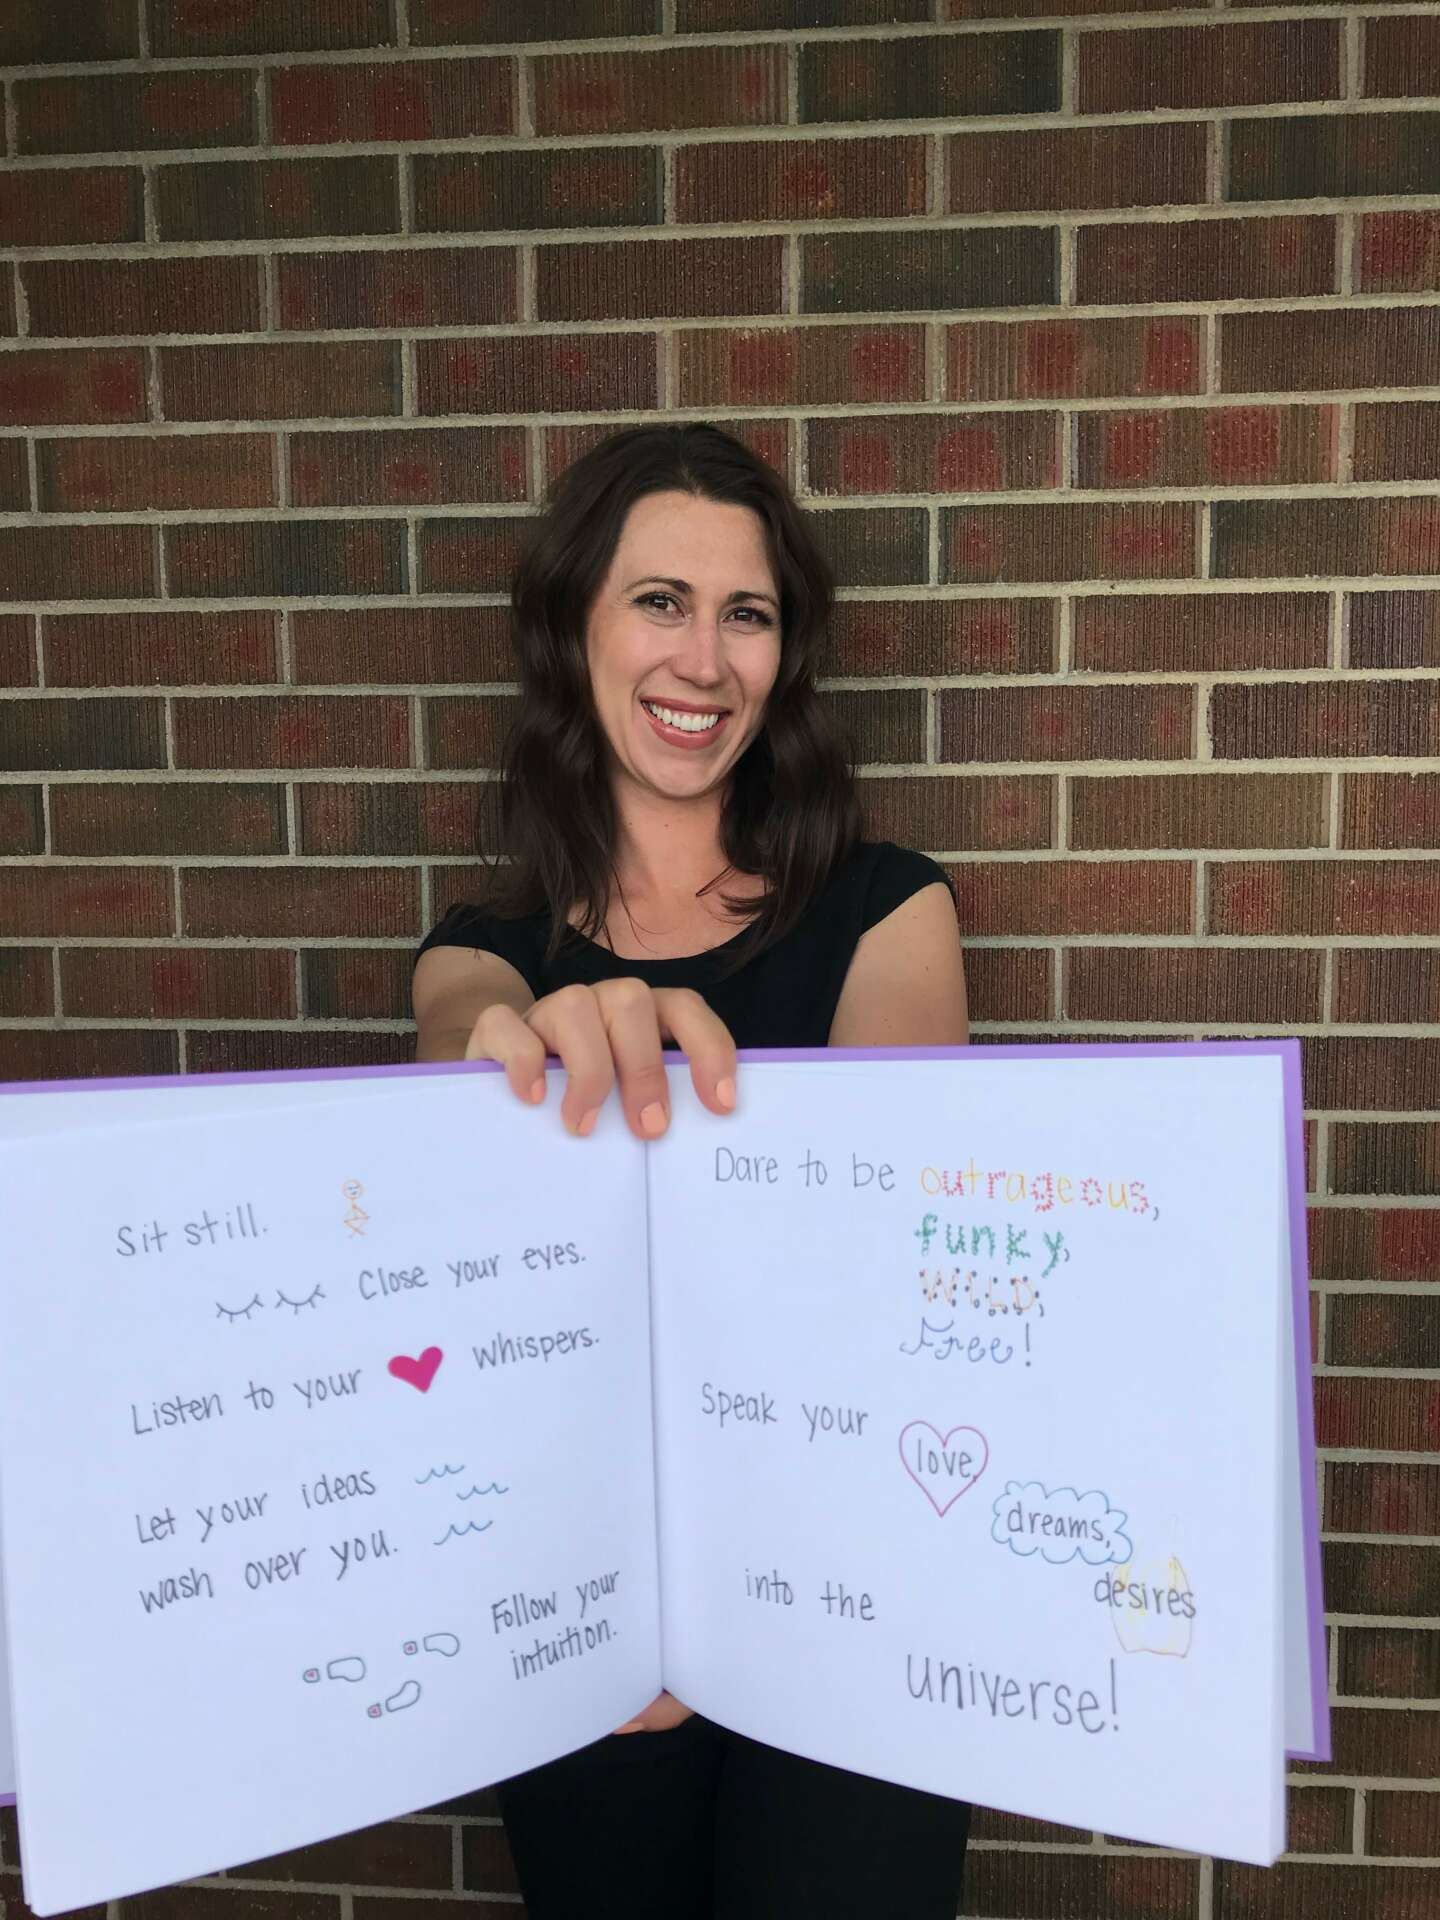 Sit still.
Close your eyes.
Listen to your whispers.
Let your ideas
wash over you.
Follow your
intuition.
Dare to be outrageous,
funky,
WILD,
Free!
Speak your love,
dreams,
desires
into the
universe!